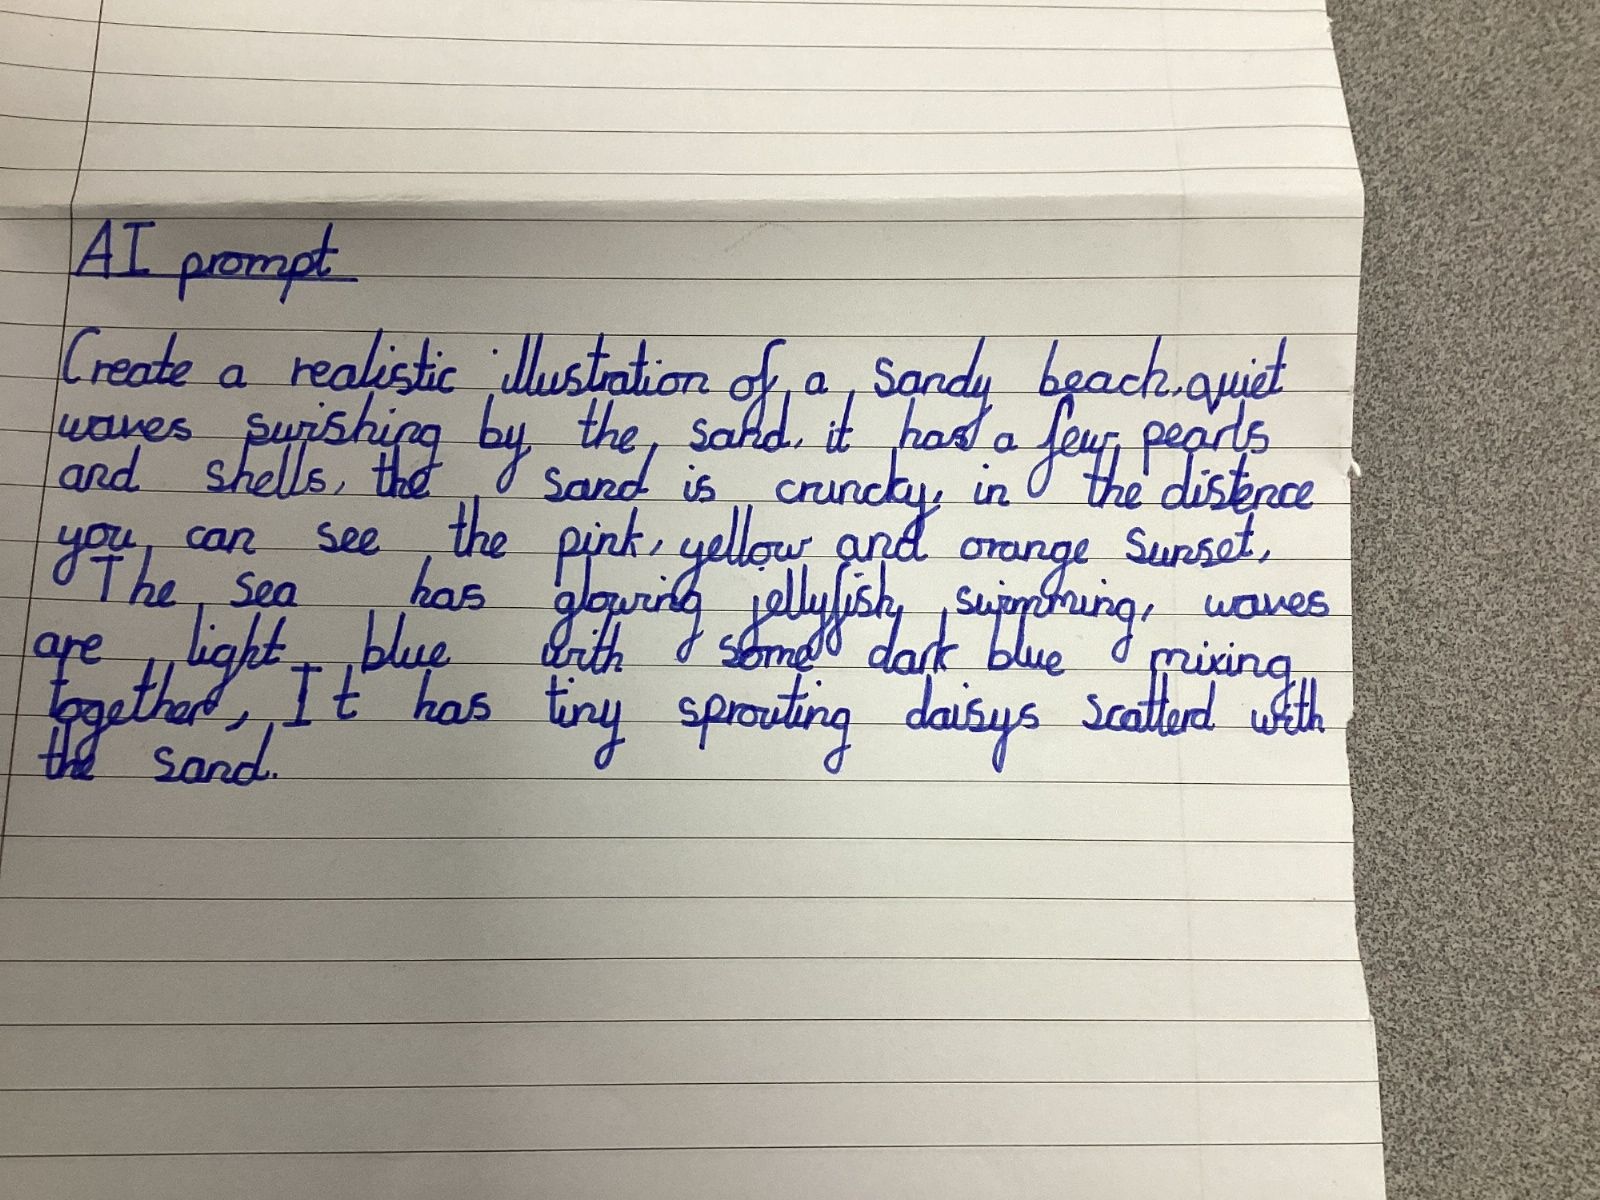 AI prompt
Create a realistic illustration of a sandy beach, quiet
waves swishing by the sand, it has a few pearls
and shells, the sand is cruncky, in the distence
you can see the pink, yellow and orange sunset,
The sea has glowing jellyfish swimming, waves
are light blue with some dark blue mixing
together, It has tiny sprouting daisys scatterd with
the sand.